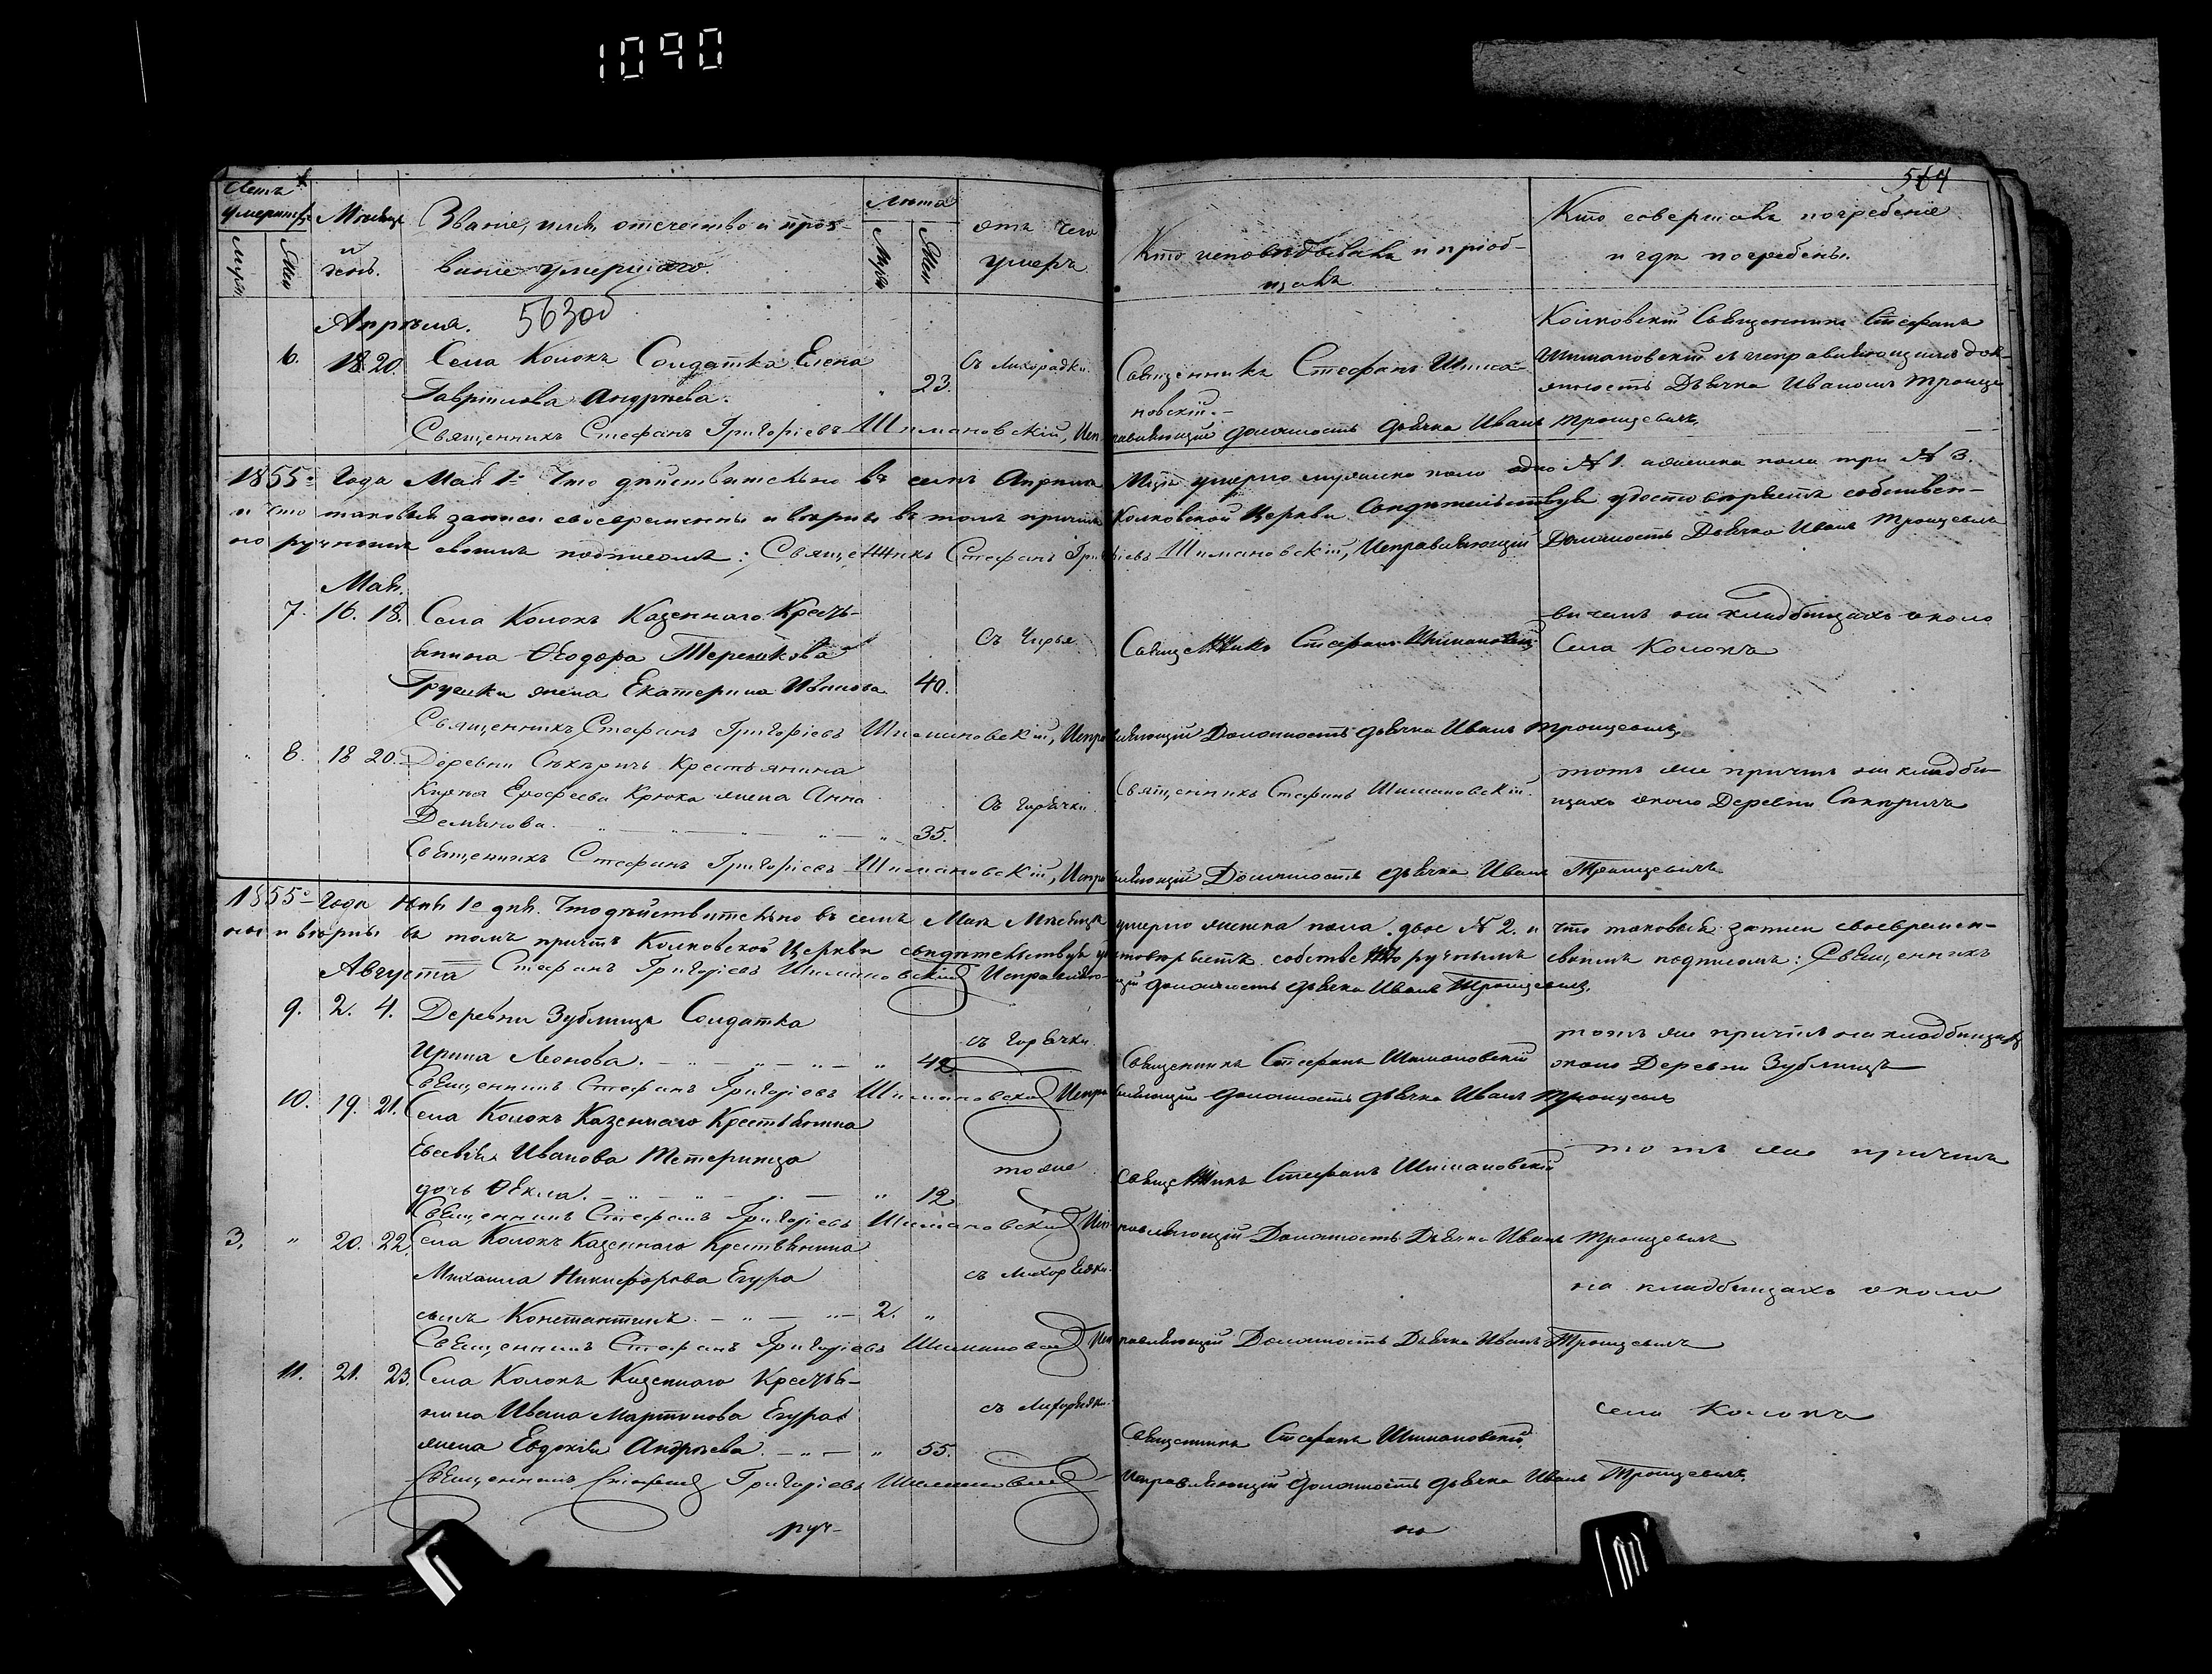 1090
564
Счетъ умершихъ
Мужс. Жен.
Месяцъ и день.
Званіе, имя, отечество и прозваніе умершаго.
Лѣта
Мужс. Жен.
отъ чего умеръ
Кто исповѣдывалъ и пріобщалъ
Кто совершалъ погребеніе
и гдѣ погребены.
Апрѣля. 563об
6. 18 20. Села Колокъ Солдатка Елена
Гавріилова Андреева. 23.
Съ лихорадки.
Священникъ Стефанъ Шимановскій.
Колковскій Священникъ Стефанъ
Шимановскій съ исправляющимъ должность Дьячка Иваномъ
Священникъ Стефанъ Григоріевъ Шимановскій, Исправляющій должность дьячка Иванъ Троицевичъ
1855го Года Мая 1го Что дѣйствительно въ семъ Апрѣлѣ Мцѣ умерло мужеска пола одно № 1. а женска пола три № 3.
и что таковыя записи своевременны и вѣрны въ томъ причтъ Колковской Церкви Свидѣтельствуя удостовѣряетъ собственноручнымъ своимъ подписомъ: Священникъ Стефанъ Григоріевъ Шимановскій, Исправляющій Должность Дьячка Иванъ Троицевичъ
Мая.
7. 16. 18. Села Колокъ Казеннаго Крестьянина Ѳеодора
жена Екатерина Иванова 40.
Съ Чирья
Священникъ Стефанъ Шимановскій
на кладбищахъ около
Села Колокъ
Священникъ Стефанъ Григоріевъ Шимановскій, Исправляющій Должность дьячка Иванъ Троицевичъ
8. 18 20. Деревни Крестьянина
Ерофеева Крюка жена Анна
Демянова. 35.
Съ Горячки.
Священникъ Стефанъ Шимановскій.
тотъ же причтъ на кладбищахъ около Деревни
Священникъ Стефанъ Григоріевъ Шимановскій, Исправляющій Должность дьячка Иванъ Троицевичъ
1855го Года Іюня 1го дня. Что дѣйствительно въ семъ Маѣ Месяцѣ умерло женска пола двое № 2. и что таковыя записи своевременны и вѣрны въ томъ причтъ Колковской Церкви свидѣтельствуя удостовѣряетъ собственноручнымъ своимъ подписомъ: Священникъ
Стефанъ Григоріевъ Шимановскій Исправляющій должность дьячка Иванъ Троицевичъ.
Августа
9. 2. 4. Деревни Зублища Солдатка
Ирина Леонова. 42
съ Горячки.
Священникъ Стефанъ Шимановскій
тотъ же причтъ на кладбищахъ
около Деревни Зублищъ
Священникъ Стефанъ Григоріевъ Шимановскій Исправляющій должность дьячка Иванъ Троицевичъ
10. 19. 21. Села Колокъ Казеннаго Крестьянина
Евсевія Иванова
дочь Ѳекла. 12
тоже.
Священникъ Стефанъ Шимановскій
тотъ же причтъ
Священникъ Стефанъ Григоріевъ Шимановскій Исправляющій Должность Дьячка Иванъ Троицевичъ
3. " 20. 22. Села Колокъ Казеннаго Крестьянина
Михаила Никифорова Егура
сынъ Константинъ. 2. "
съ лихорадки.
на кладбищахъ около
Священникъ Стефанъ Григоріевъ Шимановскій Исправляющій Должность Дьячка Иванъ Троицевичъ
11. 21. 23. Села Колокъ Казеннаго Крестьянина Ивана Мартинова Егура
жена Евдокія Андреева. 55.
съ лихорадки.
Священникъ Стефанъ Шимановскій.
села Колокъ
Священникъ Стефанъ Григоріевъ Шимановскій Исправляющій должность дьячка Иванъ Троицевичъ.
руч-
но